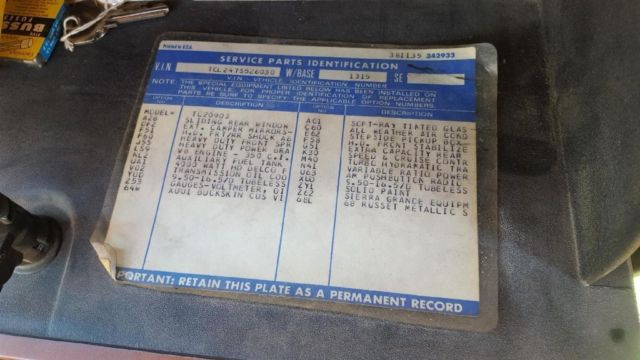 BUSS
Printed in U.S.A.
381135 342933
SERVICE PARTS IDENTIFICATION
V.I.N. TCL247S526030 W/BASE 1315 SE
V.I.N. VEHICLE IDENTIFICATION NUMBER
NOTE: THE SPECIAL EQUIPMENT LISTED BELOW HAS BEEN INSTALLED ON
THIS VEHICLE. FOR PROPER IDENTIFICATION OF REPLACEMENT
PARTS BE SURE TO SPECIFY THE APPLICABLE OPTION NUMBERS.
OPTION NO. DESCRIPTION OPTION NO. DESCRIPTION
MODEL= TC20903 A01 SOFT-RAY TINTED GLAS
A28 SLIDING REAR WINDOW C60 ALL WEATHER AIR COND
EXT. CAMPER MIRRORS- E62 STEPSIDE PICKUP BOX-
F51 H.D. FRT/RR SHOCK AB H.D. FRONT STABILIZE
F60 HEAVY DUTY FRONT SPR EXTRA CAPACITY REAR
J55 HEAVY DUTY POWER BRA K30 SPEED & CRUISE CONTR
LS9 V8 ENGINE - 350 C.I. M40 TURBO HYDRAMATIC TRA
NL2 AUXILIARY FUEL TANK N41 VARIABLE RATIO POWER
UA1 4000 WATT DELCO F U63 AM PUSHBUTTON RADIO
V02 TRANSMISSION OIL COO 9.50-16.5/D TUBELESS
9.50-16.5/D TUBELESS ZY1 SOLID PAINT
Z53 GAUGES-VOLTMETER, OI Z62 SIERRA GRANDE EQUIPM
64W BUCKSKIN CUS VI 68L 68 RUSSET METALLIC S
PORTANT: RETAIN THIS PLATE AS A PERMANENT RECORD